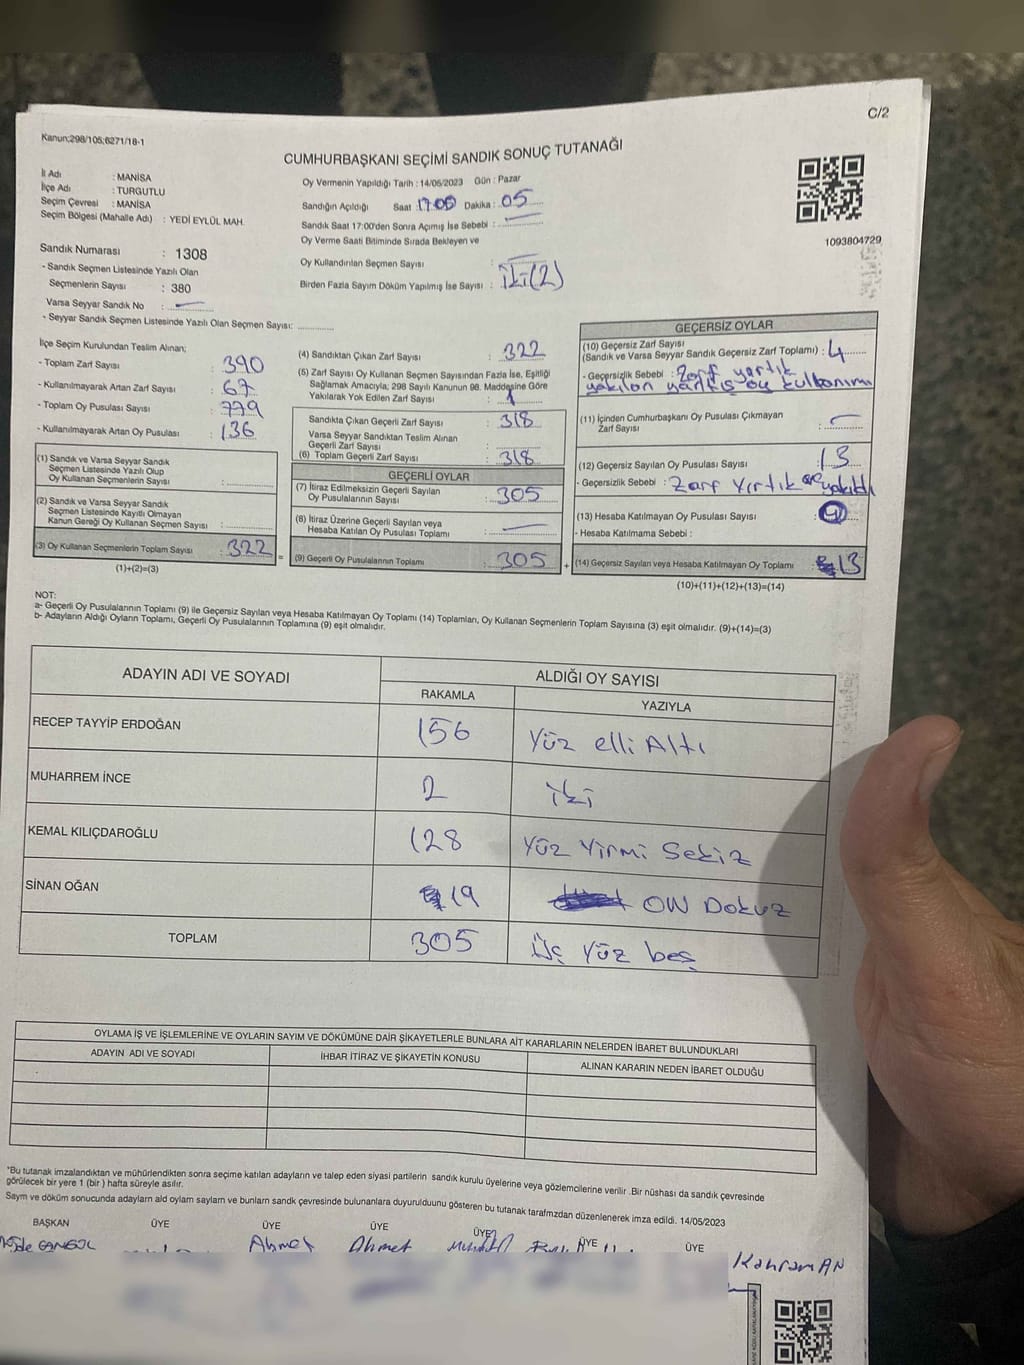 C/2
Kanun:298/105;6271/18-1
CUMHURBAŞKANI SEÇİMİ SANDIK SONUÇ TUTANAĞI
İl Adı : MANİSA
İlçe Adı : TURGUTLU
Seçim Çevresi : MANİSA
Seçim Bölgesi (Mahalle Adı) : YEDİ EYLÜL MAH.
Sandık Numarası : 1308
- Sandık Seçmen Listesinde Yazılı Olan
Seçmenlerin Sayısı : 380
Varsa Seyyar Sandık No :
- Seyyar Sandık Seçmen Listesinde Yazılı Olan Seçmen Sayısı:
Oy Vermenin Yapıldığı Tarih : 14/05/2023 Gün : Pazar
Sandığın Açıldığı Saat 17:05 Dakika : 05
Sandık Saat 17:00'den Sonra Açımış İse Sebebi :
Oy Verme Saati Bitiminde Sırada Bekleyen ve
Oy Kullandırılan Seçmen Sayısı :
Birden Fazla Sayım Döküm Yapılmış İse Sayısı : iki (2)
1093804729
İlçe Seçim Kurulundan Teslim Alınan;
- Toplam Zarf Sayısı : 390
- Kullanılmayarak Artan Zarf Sayısı : 67
- Toplam Oy Pusulası Sayısı : 779
- Kullanılmayarak Artan Oy Pusulası : 136
(1) Sandık ve Varsa Seyyar Sandık
Seçmen Listesinde Yazılı Olup
Oy Kullanan Seçmenlerin Sayısı :
(2) Sandık ve Varsa Seyyar Sandık
Seçmen Listesinde Kayıtlı Olmayan
Kanun Gereği Oy Kullanan Seçmen Sayısı :
(3) Oy Kullanan Seçmenlerin Toplam Sayısı : 322
(1)+(2)=(3)
(4) Sandıktan Çıkan Zarf Sayısı : 322
(5) Zarf Sayısı Oy Kullanan Seçmen Sayısından Fazla İse, Eşitliği
Sağlamak Amacıyla; 298 Sayılı Kanunun 98. Maddesine Göre
Yakılarak Yok Edilen Zarf Sayısı : 1
Sandıkta Çıkan Geçerli Zarf Sayısı : 318
Varsa Seyyar Sandıktan Teslim Alınan
Geçerli Zarf Sayısı :
(6) Toplam Geçerli Zarf Sayısı : 318
GEÇERLİ OYLAR
(7) İtiraz Edilmeksizin Geçerli Sayılan
Oy Pusulalarının Sayısı : 305
(8) İtiraz Üzerine Geçerli Sayılan veya
Hesaba Katılan Oy Pusulası Toplamı :
(9) Geçerli Oy Pusulalarının Toplamı : 305
GEÇERSİZ OYLAR
(10) Geçersiz Zarf Sayısı
(Sandık ve Varsa Seyyar Sandık Geçersiz Zarf Toplamı) : 4
- Geçersizlik Sebebi : Zarf yırtık
yakılan yanlış oy kullanımı
(11) İçinden Cumhurbaşkanı Oy Pusulası Çıkmayan
Zarf Sayısı :
(12) Geçersiz Sayılan Oy Pusulası Sayısı : 13
- Geçersizlik Sebebi : Zarf Yırtık yakıldı
(13) Hesaba Katılmayan Oy Pusulası Sayısı :
- Hesaba Katılmama Sebebi :
(14) Geçersiz Sayılan veya Hesaba Katılmayan Oy Toplamı : 13
(10)+(11)+(12)+(13)=(14)
NOT:
a- Geçerli Oy Pusulalarının Toplamı (9) ile Geçersiz Sayılan veya Hesaba Katılmayan Oy Toplamı (14) Toplamları, Oy Kullanan Seçmenlerin Toplam Sayısına (3) eşit olmalıdır. (9)+(14)=(3)
b- Adayların Aldığı Oyların Toplamı, Geçerli Oy Pusulalarının Toplamına (9) eşit olmalıdır.
ADAYIN ADI VE SOYADI ALDIĞI OY SAYISI
RAKAMLA YAZIYLA
RECEP TAYYİP ERDOĞAN 156 Yüz elli Altı
MUHARREM İNCE 2 iki
KEMAL KILIÇDAROĞLU 128 Yüz Yirmi Sekiz
SİNAN OĞAN 19 ON Dokuz
TOPLAM 305 üç Yüz beş
OYLAMA İŞ VE İŞLEMLERİNE VE OYLARIN SAYIM VE DÖKÜMÜNE DAİR ŞİKAYETLERLE BUNLARA AİT KARARLARIN NELERDEN İBARET BULUNDUKLARI
ADAYIN ADI VE SOYADI İHBAR İTİRAZ VE ŞİKAYETİN KONUSU ALINAN KARARIN NEDEN İBARET OLDUĞU
"Bu tutanak imzalandıktan ve mühürlendikten sonra seçime katılan adayların ve talep eden siyasi partilerin sandık kurulu üyelerine veya gözlemcilerine verilir .Bir nüshası da sandık çevresinde
görülecek bir yere 1 (bir ) hafta süreyle asılır.
Sayım ve döküm sonucunda adayların ald oyların sayların ve bunların sandk çevresinde bulunanlara duyurulduunu gösteren bu tutanak tarafmzdan düzenlenerek imza edildi. 14/05/2023
BAŞKAN ÜYE ÜYE ÜYE ÜYE ÜYE ÜYE
Ahmet Ahmet
KahramAN